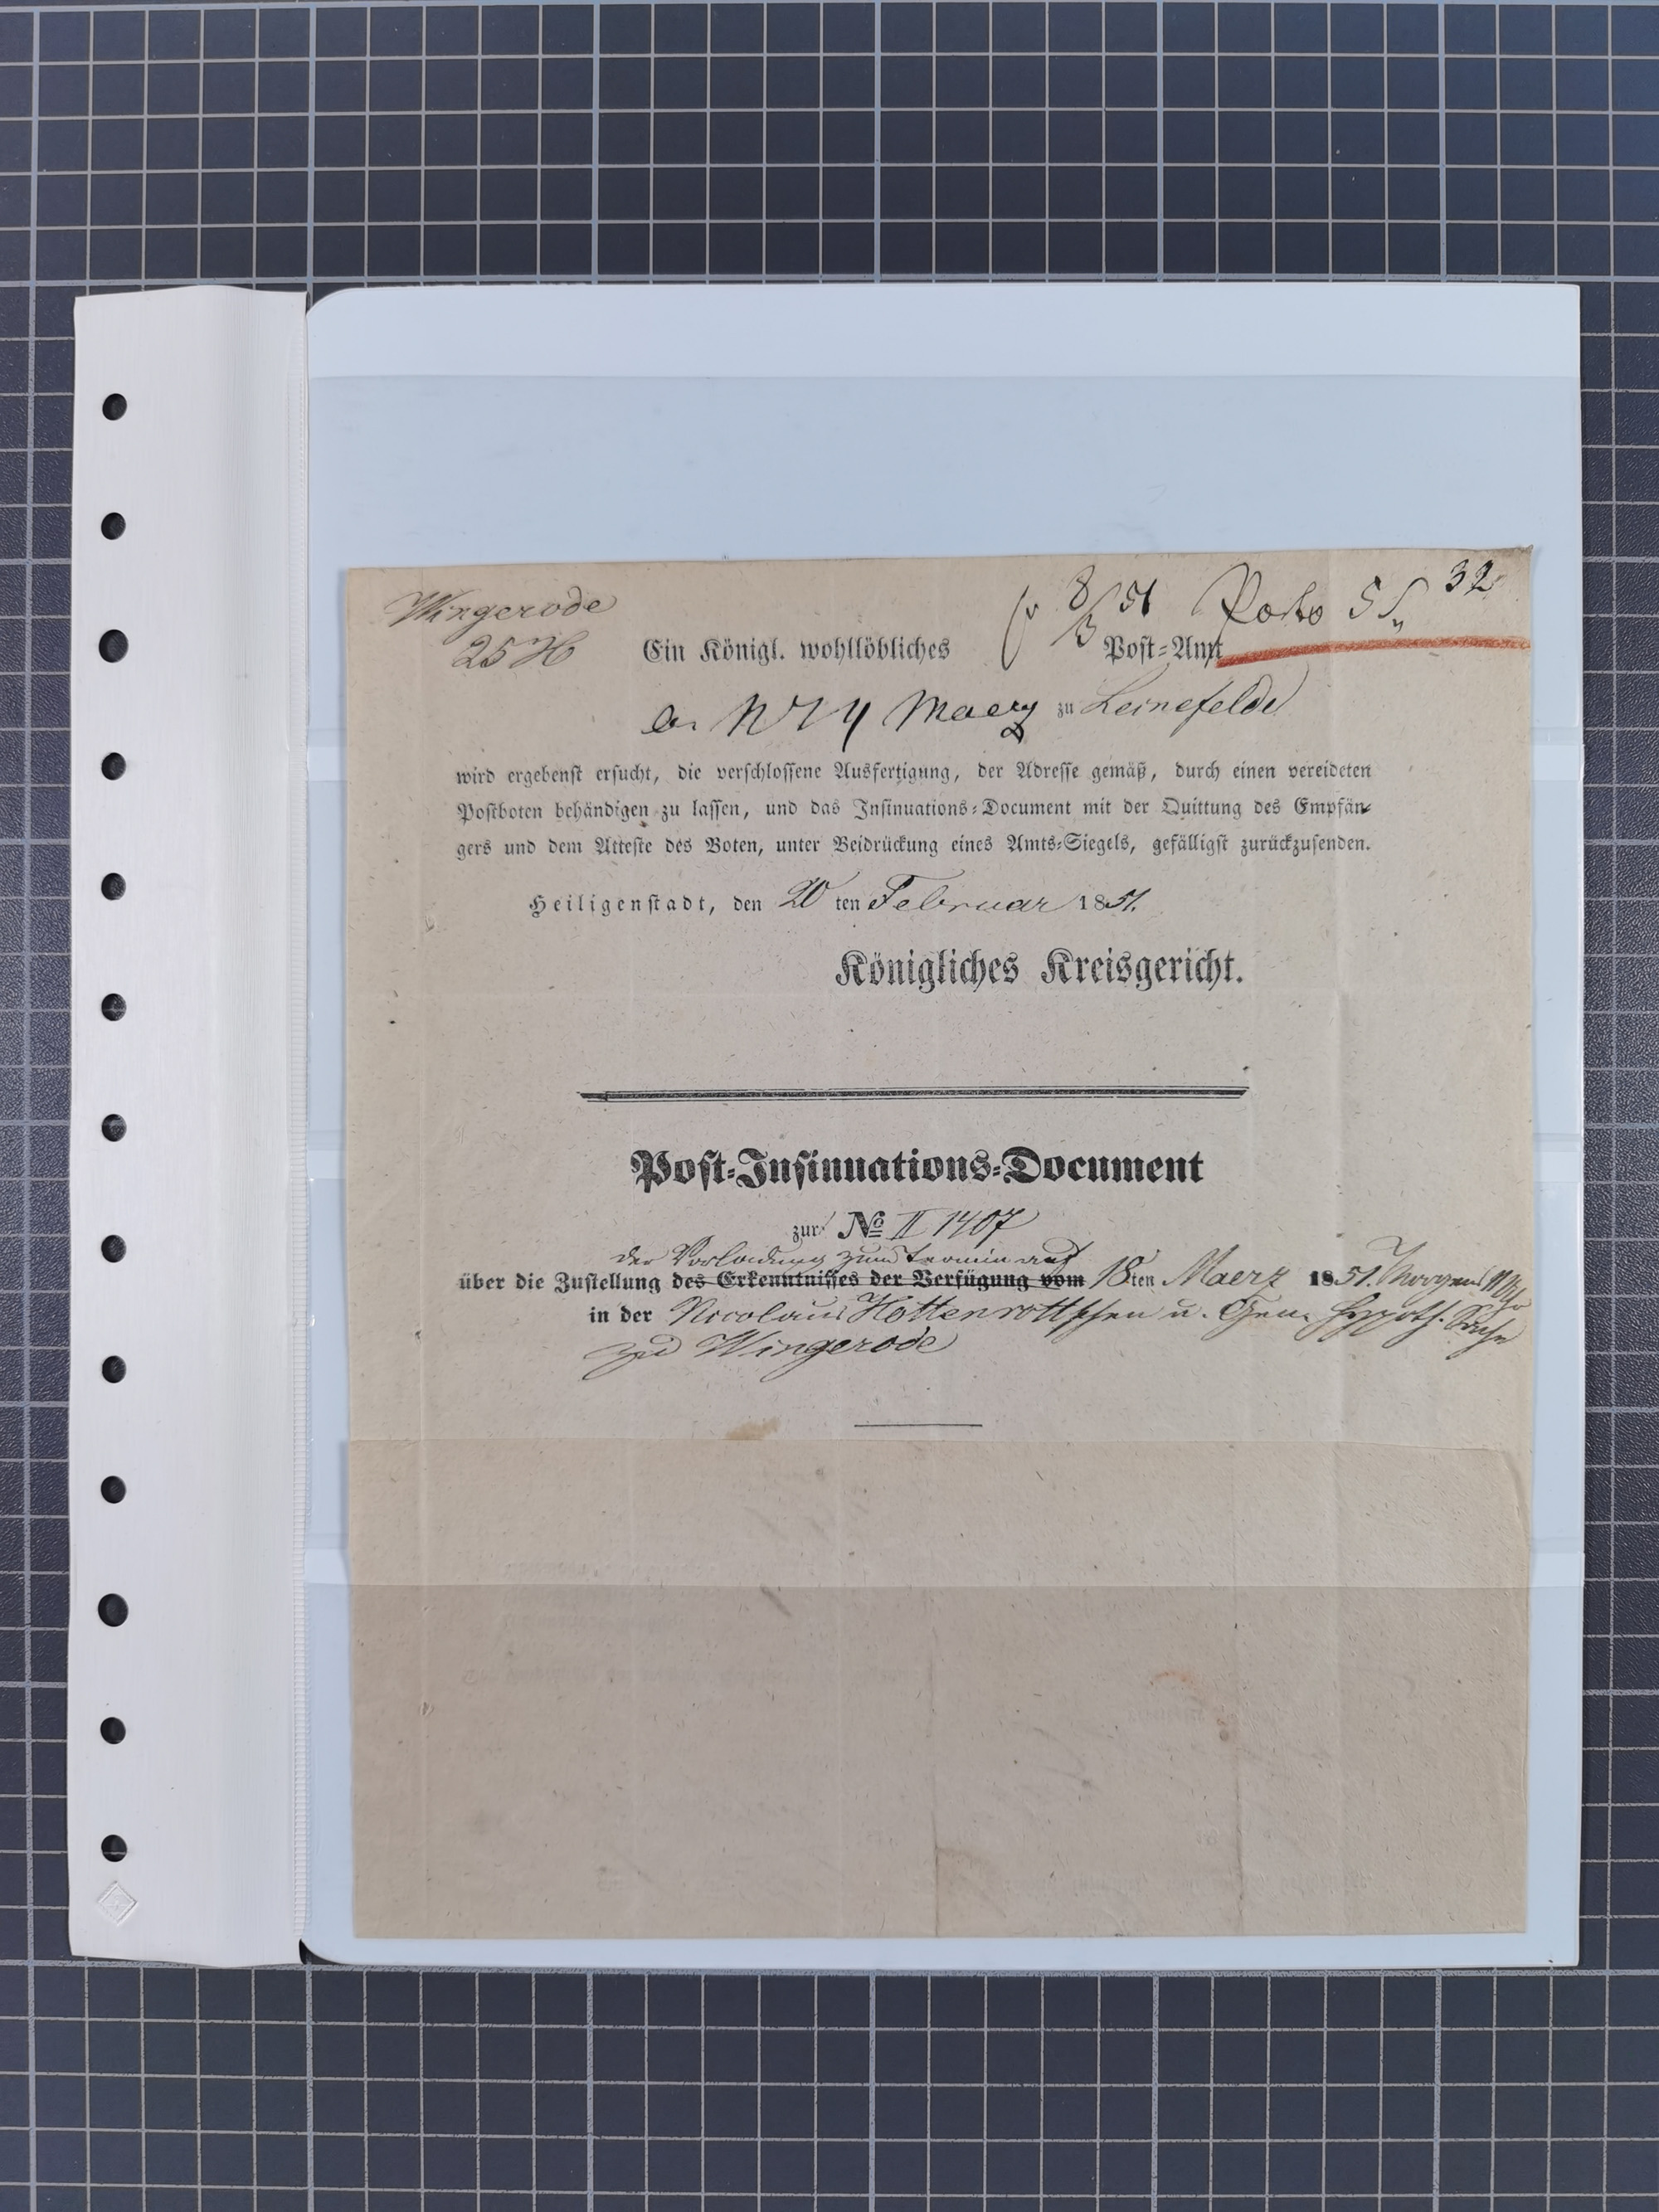 Wingerode
25 H
8/3 51 Porto 5 S 32
Ein Königl. wohllöbliches Post-Amt
Maerz zu Leinefelde
wird ergebenst ersucht, die verschlossene Ausfertigung, der Adresse gemäß, durch einen vereideten
Postboten behändigen zu lassen, und das Insinuations-Document mit der Quittung des Empfän-
gers und dem Atteste des Boten, unter Beidrückung eines Amts-Siegels, gefälligst zurückzusenden.
Heiligenstadt, den 20 ten Februar 1851.
Königliches Kreisgericht.
Post-Insinuations-Document
zur № II 1407
der Vorladung zum Termin auf
über die Zustellung des Erkenntnisses der Verfügung vom 18ten Maerz 1851. Morgens
in der Nicolaus Hottenrottschen u. Gen. Hypoth. Sache
zu Wingerode